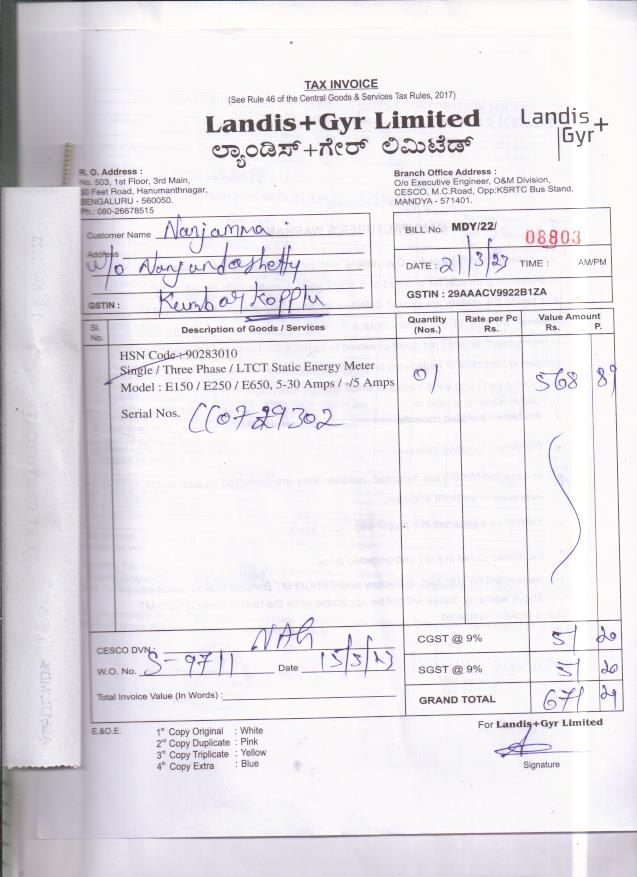 TAX INVOICE
(See Rule 46 of the Central Goods & Services Tax Rules, 2017)
Landis+Gyr Limited
ಲ್ಯಾಂಡಿಸ್+ಗೇರ್ ಲಿಮಿಟೆಡ್
Landis
Gyr+
R. O. Address :
No. 503, 1st Floor, 3rd Main,
50 Feet Road, Hanumanthnagar,
BENGALURU - 560050.
Ph.: 080-26678515
Branch Office Address :
O/o Executive Engineer, O&M Division,
CESCO, M.C.Road, Opp:KSRTC Bus Stand,
MANDYA - 571401.
Customer Name Nanjamma
Address W/o Nanjundashetty
GSTIN : Kumbarkopplu
BILL No. MDY/22/ 08803
DATE : 21/3/23 TIME : AM/PM
GSTIN : 29AAACV9922B1ZA
Sl. No. Description of Goods / Services Quantity (Nos.) Rate per Pc Rs. Value Amount Rs. P.
HSN Code : 90283010
Single / Three Phase / LTCT Static Energy Meter
Model : E150 / E250 / E650, 5-30 Amps / -/5 Amps 01 568 89
Serial Nos. CC0729302
CESCO DVN.: NAG
W.O. No. S-9711 Date 15/3/23
Total Invoice Value (In Words) :
CGST @ 9% 51 20
SGST @ 9% 51 20
GRAND TOTAL 671 29
E.&O.E.
1st Copy Original : White
2nd Copy Duplicate : Pink
3rd Copy Triplicate : Yellow
4th Copy Extra : Blue
For Landis+Gyr Limited
Signature